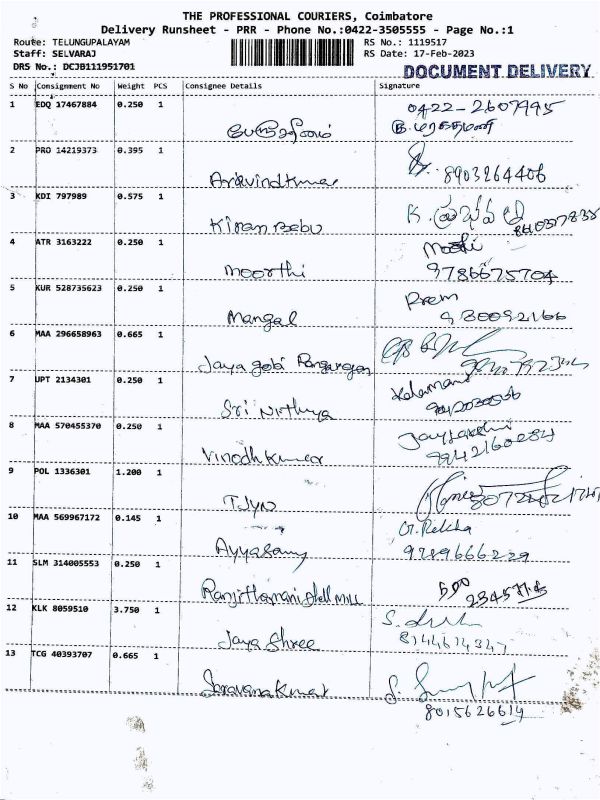 THE PROFESSIONAL COURIERS, Coimbatore
Delivery Runsheet - PRR - Phone No.:0422-3505555 - Page No.:1
Route: TELUNGUPALAYAM RS No.: 1119517
Staff: SELVARAJ RS Date: 17-Feb-2023
DRS No.: DCJB111951701 DOCUMENT DELIVERY
S No Consignment No Weight PCS Consignee Details Signature
1 EDQ 17467884 0.250 1 0422-2607995
2 PRO 14219373 0.395 1
Aravindkumar 8903264406
3 KDI 797989 0.575 1 K.
Kiran Babu
4 ATR 3163222 0.250 1
Moorthi 9786675704
5 KUR 528735623 0.250 1 Prem
Mangal 9300092166
6 MAA 296658963 0.665 1
Jaya gobi
7 UPT 2134301 0.250 1
Sri Nithya
8 MAA 570455370 0.250 1
Vinodh kumar
9 POL 1336301 1.200 1
10 MAA 569967172 0.145 1 G. Rekha
Ayyasamy 9789666229
11 SLM 314005553 0.250 1
12 KLK 8059510 3.750 1 S.
Jaya Shree
13 TCG 40393707 0.665 1 S.
Saravana Kumar
8015626614